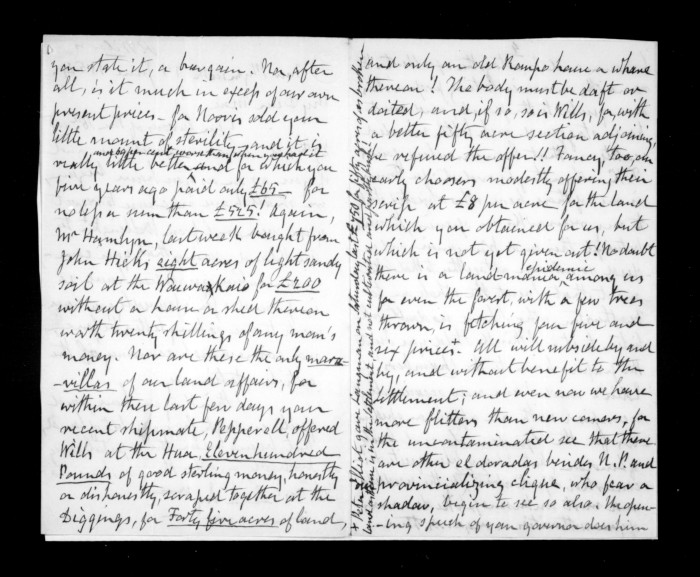 you state it, a bargain. Nor, after
all, is it much in excess of our own
present prices — for Hoovis sold your
little mount of sterility, and it is
not 69 per cent worse than when you had it
really little better land for which you
five years ago paid only £65 — for
no less a sum than £525! Again,
Mr Hamlyn, last week bought from
John Hicks eight acres of light sandy
soil at the Wawakaio for £200
without a house or shed thereon
worth twenty shillings of any man's
money. Nor are these the only mara-
-villas of our land affairs, for
within these last few days your
recent shipmate, Pepperell, offered
Wills at the Hua, Eleven hundred
Pounds of good sterling money, honestly
or dishonestly, scraped together at the
Diggings, for Forty five acres of land,
and only an old Raupo house or whare
thereon! The body must be daft or
doited, and, if so, so is Wills, for, with
a better fifty acre section adjoining,
he refused the offer!! Fancy, too, our
early choosers modestly offering their
scrip at £8 per acre for the land
which you obtained for us, but
which is not yet given out! No doubt
there is a land-mania epidemic among us
for even the forest, with a few trees
thrown, is fetching four five and
six prices+. All will subside by and
by, and without benefit to the
settlement; and even now we have
more flitters than new comers, for
the uncontaminated see that there
are other el doradas besides N.P. and
provincializing clique, who fear a
shadow, begin to see so also. The open-
-ing speech of your governor does him
+ Peter Elliot gave Langman on Saturday last £450 for fifty